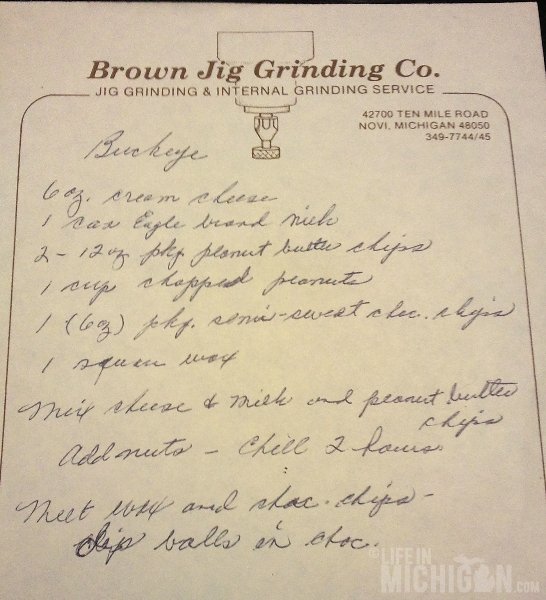 Brown Jig Grinding Co.
JIG GRINDING & INTERNAL GRINDING SERVICE
42700 TEN MILE ROAD
NOVI, MICHIGAN 48050
349-7744/45
Buckeye
6 oz. cream cheese
1 can Eagle brand milk
2 - 12 oz pkg peanut butter chips
1 cup chopped peanuts
1 (6oz) pkg. semi-sweet choc. chips
1 square wax
Mix cheese & milk and peanut butter
chips
Add nuts - Chill 2 hours.
Melt wax and choc. chips -
dip balls in choc.
© LIFE IN
MICHIGAN.COM